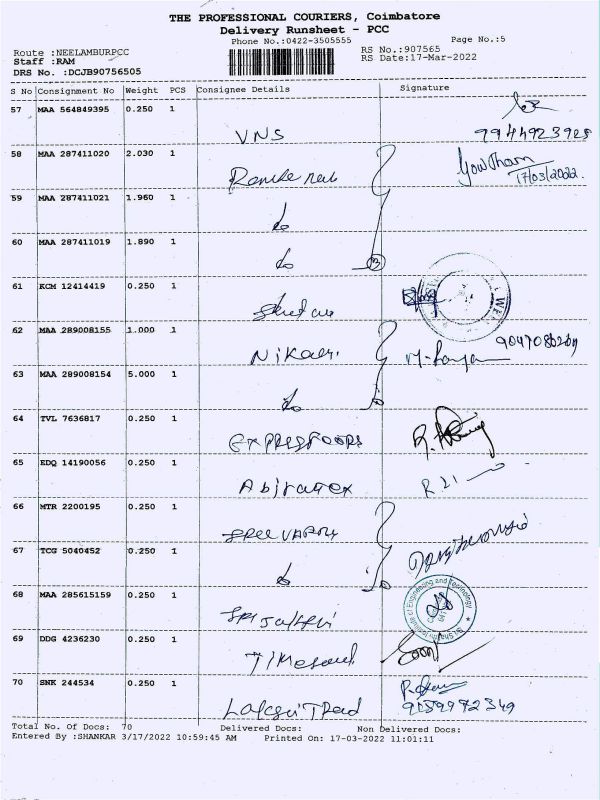 THE PROFESSIONAL COURIERS, Coimbatore
Delivery Runsheet - PCC
Phone No.:0422-3505555
Page No.:5
Route :NEELAMBURPCC
RS No.:907565
Staff :RAM
RS Date:17-Mar-2022
DRS No. :DCJB90756505
S No Consignment No Weight PCS Consignee Details Signature
57 MAA 564849395 0.250 1
VNS 9944923925
58 MAA 287411020 2.030 1
Gowtham
17/03/2022.
59 MAA 287411021 1.960 1
do
60 MAA 287411019 1.890 1
do 3
61 KCM 12414419 0.250 1
62 MAA 289008155 1.000 1
63 MAA 289008154 5.000 1
do
64 TVL 7636817 0.250 1
65 EDQ 14190056 0.250 1
66 MTR 2200195 0.250 1
67 TCG 5040452 0.250 1
do
68 MAA 285615159 0.250 1
Sri Shakthi Institute of Engineering and Technology
69 DDG 4236230 0.250 1
70 SNK 244534 0.250 1
Total No. Of Docs: 70 Delivered Docs: Non Delivered Docs:
Entered By :SHANKAR 3/17/2022 10:59:45 AM Printed On: 17-03-2022 11:01:11